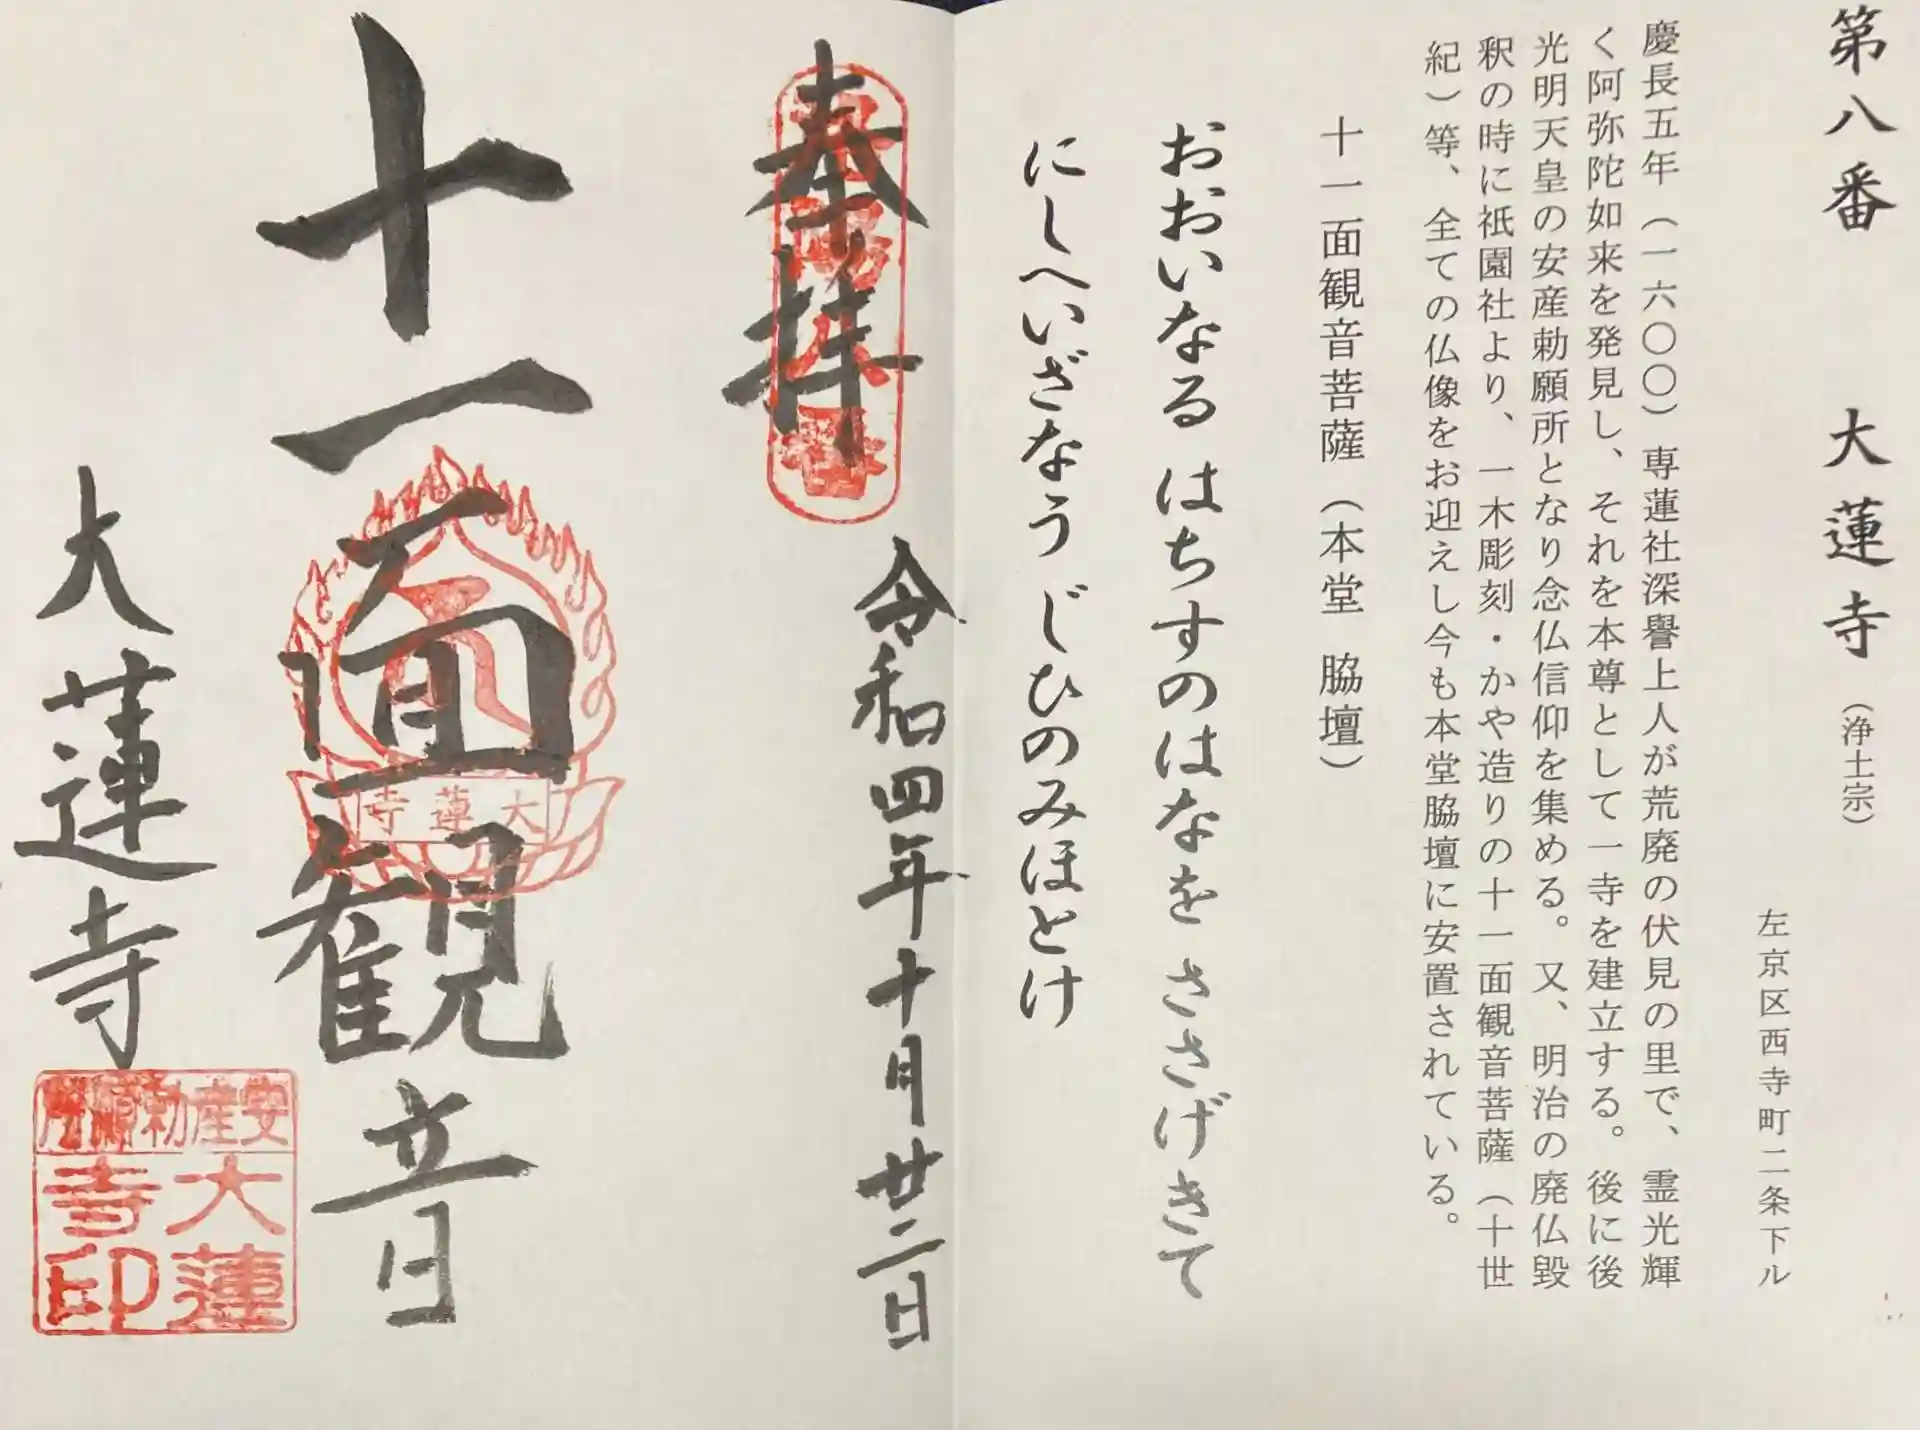 第八番 大蓮寺（浄土宗）
左京区西寺町二条下ル
慶長五年（一六〇〇）専蓮社深譽上人が荒廃の伏見の里で、霊光輝
く阿弥陀如来を発見し、それを本尊として一寺を建立する。後に後
光明天皇の安産勅願所となり念仏信仰を集める。又、明治の廃仏毀
釈の時に祇園社より、一木彫刻・かや造りの十一面観音菩薩（十世
紀）等、全ての仏像をお迎えし今も本堂脇壇に安置されている。
十一面観音菩薩（本堂 脇壇）
おおいなる はちすのはなを ささげきて
にしへいざなう じひのみほとけ
奉拝
令和四年十月廿二日
十一面観音
大蓮寺
大蓮寺
安産勅願所
大蓮
寺印